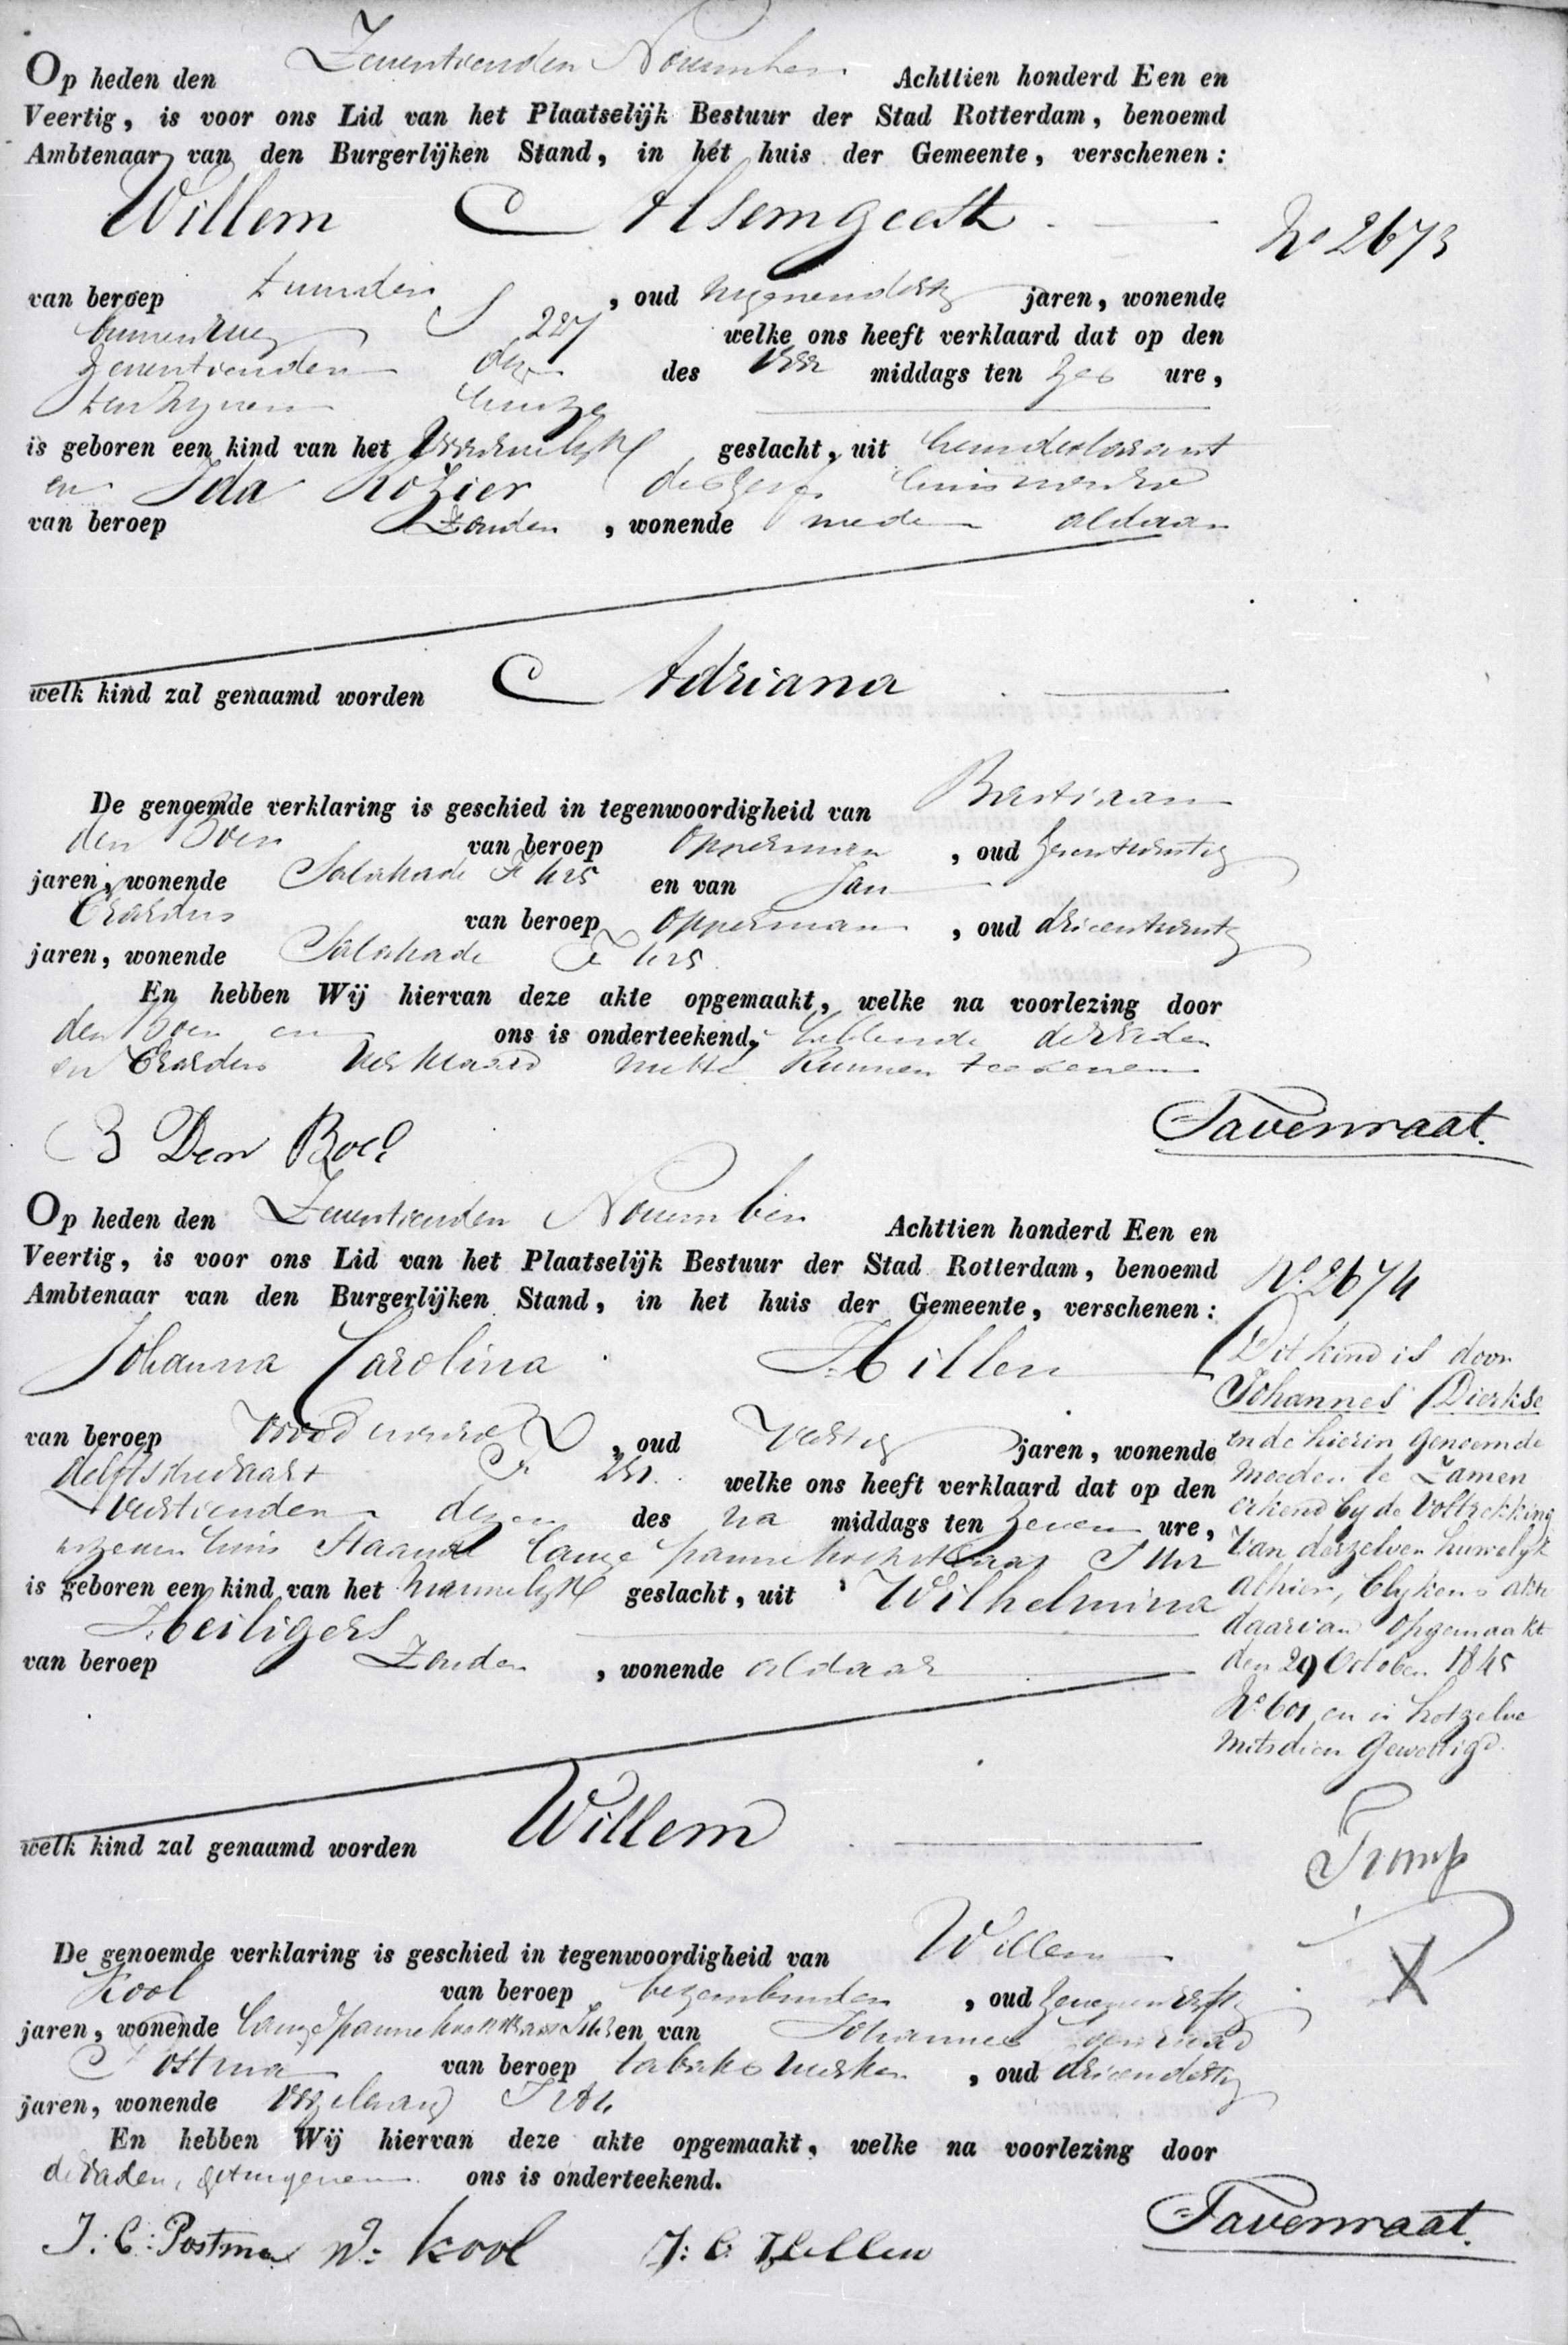 Op heden den Zeventienden November Achttien honderd Een en
Veertig, is voor ons Lid van het Plaatselijk Bestuur der Stad Rotterdam, benoemd
Ambtenaar van den Burgerlijken Stand, in het huis der Gemeente, verschenen:
Willem Alsemgeest
No 2673
van beroep , oud negenendertig jaren, wonende
binnenweg S 227 welke ons heeft verklaard dat op den
Zeventienden dezer des voor middags ten zes ure,
ten zynen huize
is geboren een kind van het Vrouwelyk geslacht, uit hem declarant
en Ida Rozier deszelfs huisvrouw
van beroep Zonder , wonende mede aldaar
welk kind zal genaamd worden Adriana
De genoemde verklaring is geschied in tegenwoordigheid van Bastiaan
den Boer van beroep Opperman , oud zevenentwintig
jaren, wonende en van Jan
Erardus van beroep Opperman , oud drieentwintig
jaren, wonende
En hebben Wij hiervan deze akte opgemaakt, welke na voorlezing door
den Boer en ons is onderteekend, hebbende de Vader
en Erardus verklaard niet te kunnen teekenen
B Den Boer
Tavenraat.
Op heden den Zeventienden November Achttien honderd Een en
Veertig, is voor ons Lid van het Plaatselijk Bestuur der Stad Rotterdam, benoemd
Ambtenaar van den Burgerlijken Stand, in het huis der Gemeente, verschenen:
Johanna Carolina Hillen
van beroep Vroedvrouw , oud Veertig jaren, wonende
delftschevaart welke ons heeft verklaard dat op den
Veertienden dezer des na middags ten Zeven ure,
huis Staande lange pannekoekstraat
is geboren een kind van het mannelyk geslacht, uit Wilhelmina
Heiligers
van beroep Zonder , wonende aldaar
welk kind zal genaamd worden Willem
De genoemde verklaring is geschied in tegenwoordigheid van Willem
Kool van beroep bezembinder , oud
jaren, wonende Lange pannekoekstraat en van Johannes Coenraad
Postma van beroep tabaks werker , oud drieendertig
jaren, wonende
En hebben Wij hiervan deze akte opgemaakt, welke na voorlezing door
getuigen ons is onderteekend.
J: C: Postma W: Kool J: C: Hillen
Tavenraat.
No. 2674
Dit kind is door
Johannes Dierkse
en de hierin genoemde
moeder te Zamen
erkend by de Voltrekking
van derzelver huwelyk
alhier, blykens akte
daarvan opgemaakt
den 29 October 1845
No 601 en is hetzelve
mitsdien gewettigd.
Tromp
X